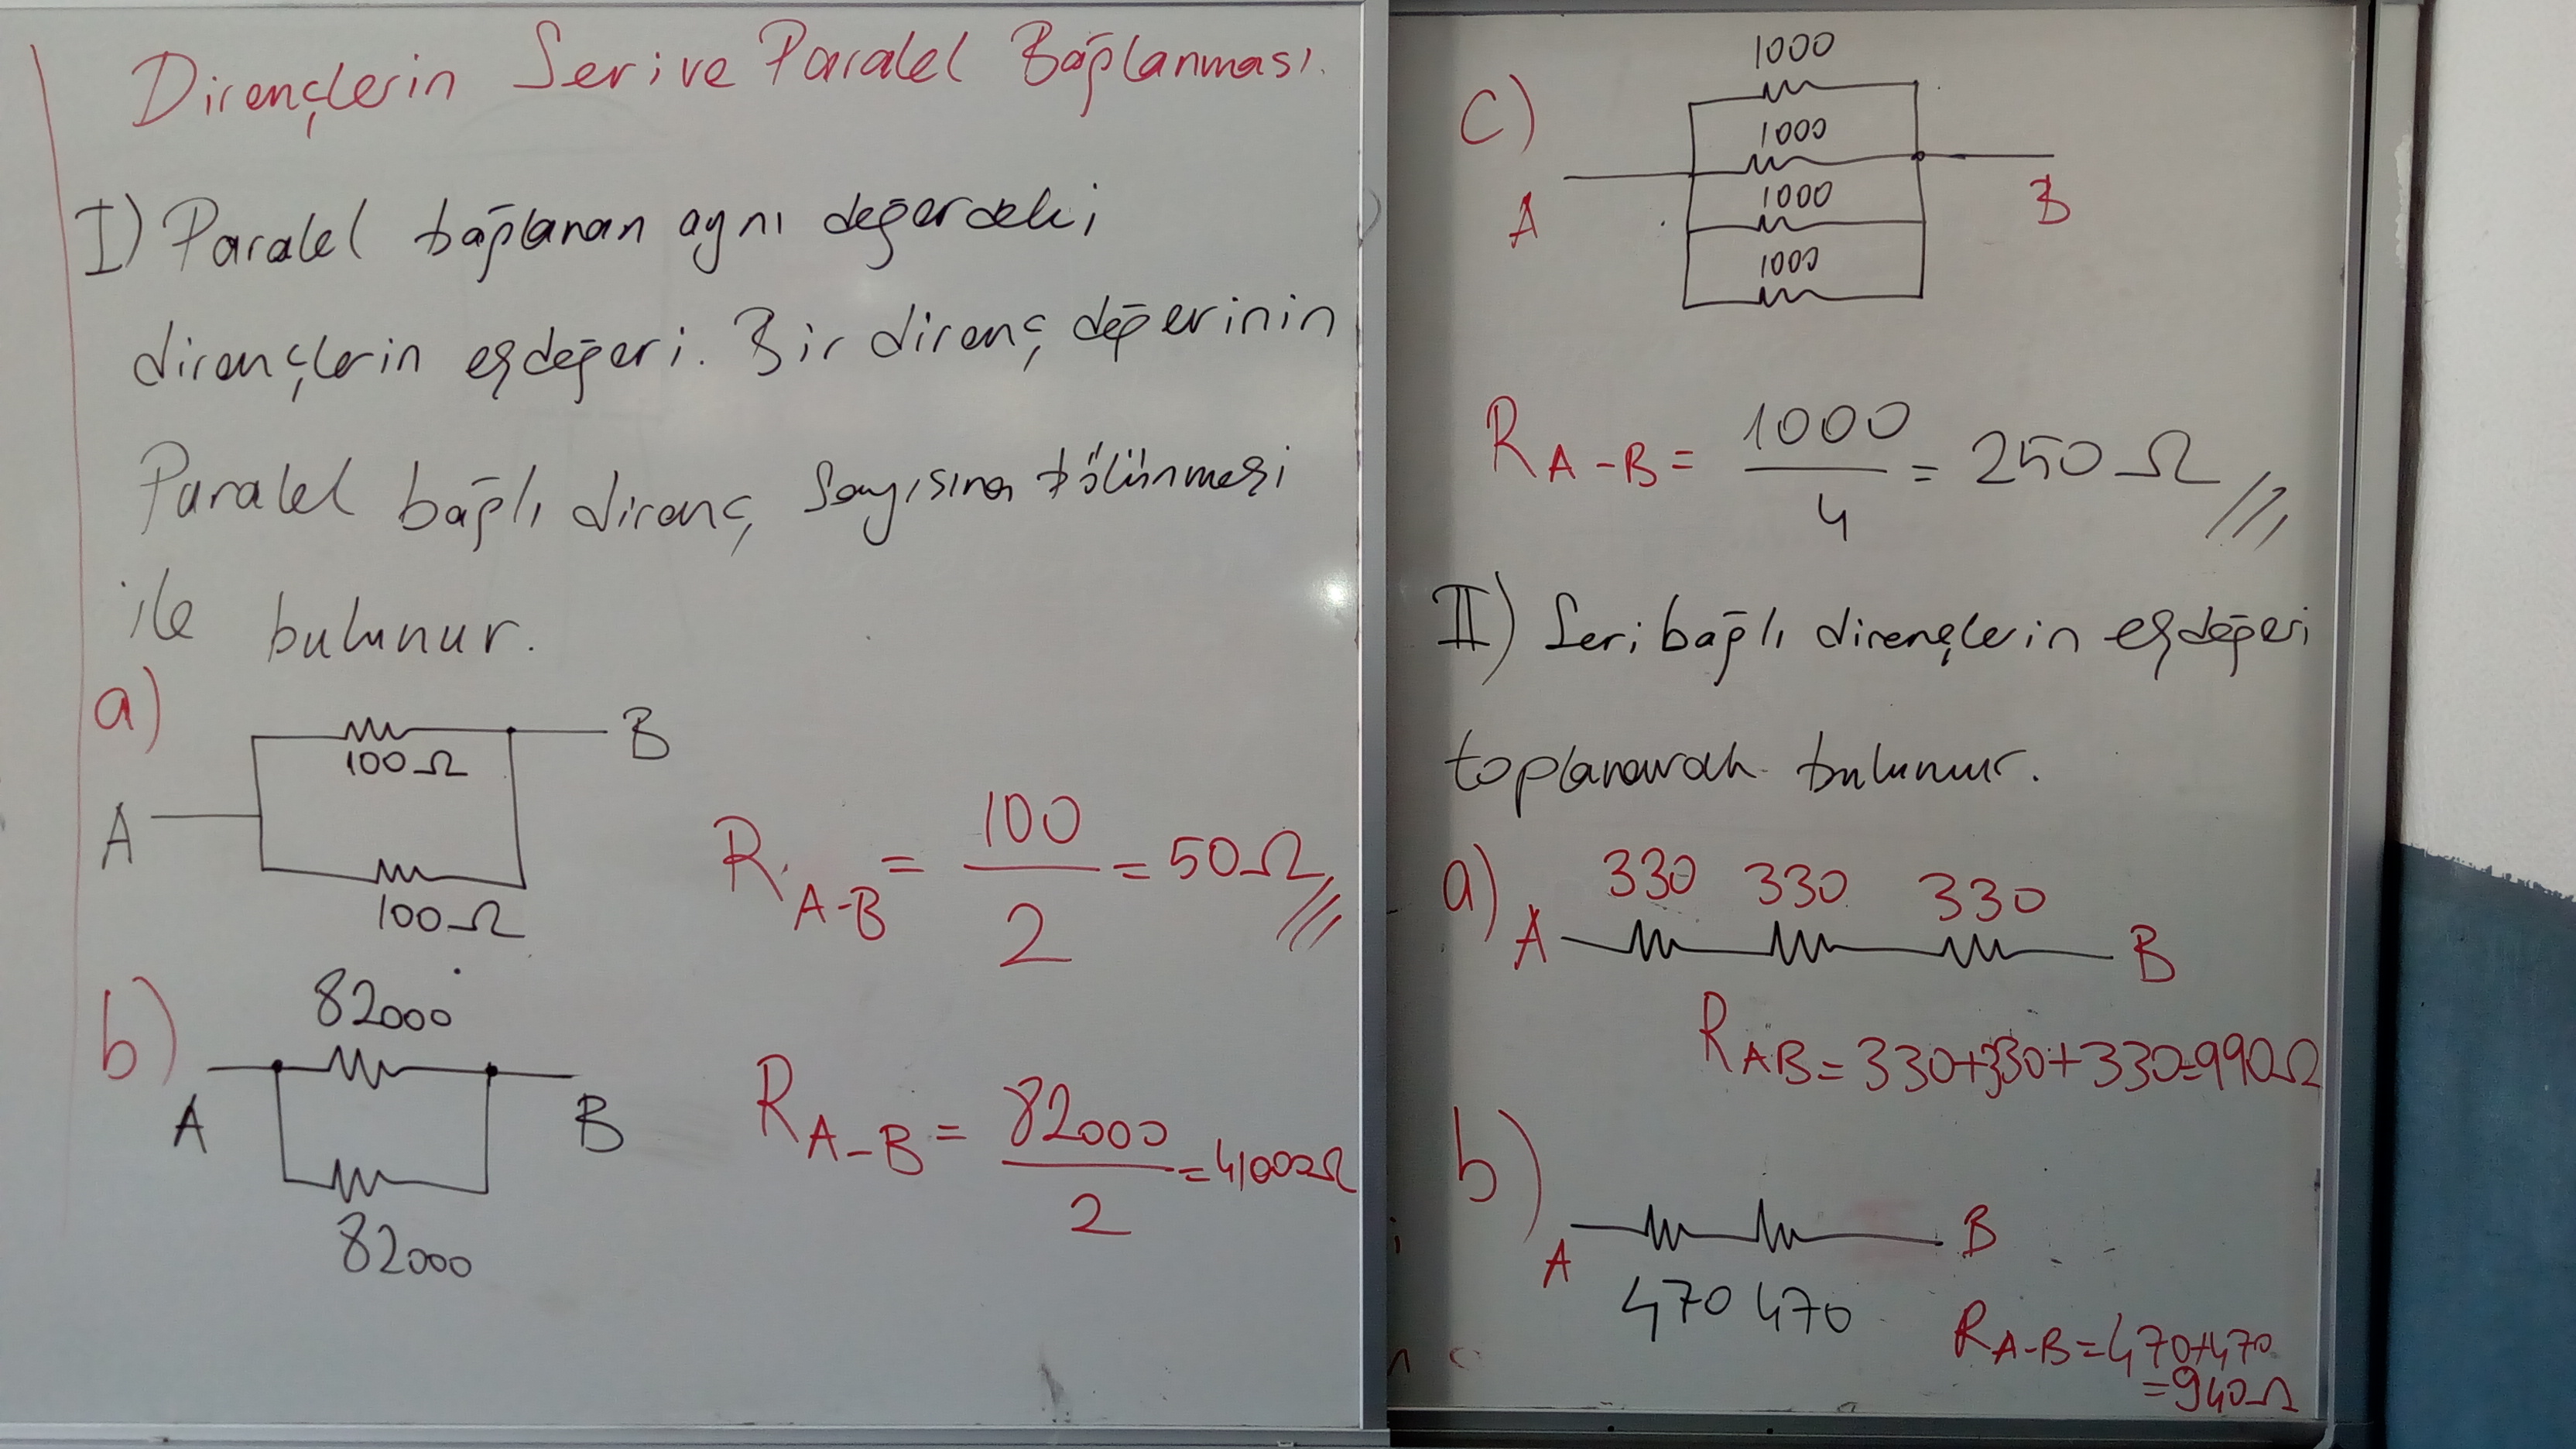 Dirençlerin Seri ve Paralel Bağlanması.
I) Paralel bağlanan aynı değerdeki
dirençlerin eşdeğeri. Bir direnç değerinin
Paralel bağlı direnç sayısına bölünmesi
ile bulunur.
a)
100Ω
B
A
100Ω
R A-B = 100/2 = 50Ω
b)
82000
A
B
82000
R A-B = 82000/2 = 41000Ω
C)
1000
1000
1000
1000
A
B
R A-B = 1000/4 = 250Ω
II) Seri bağlı dirençlerin eşdeğeri
toplanarak bulunur.
a)
330 330 330
A B
R AB = 330+330+330=990Ω
b)
A B
470 470
R A-B = 470+470
=940Ω